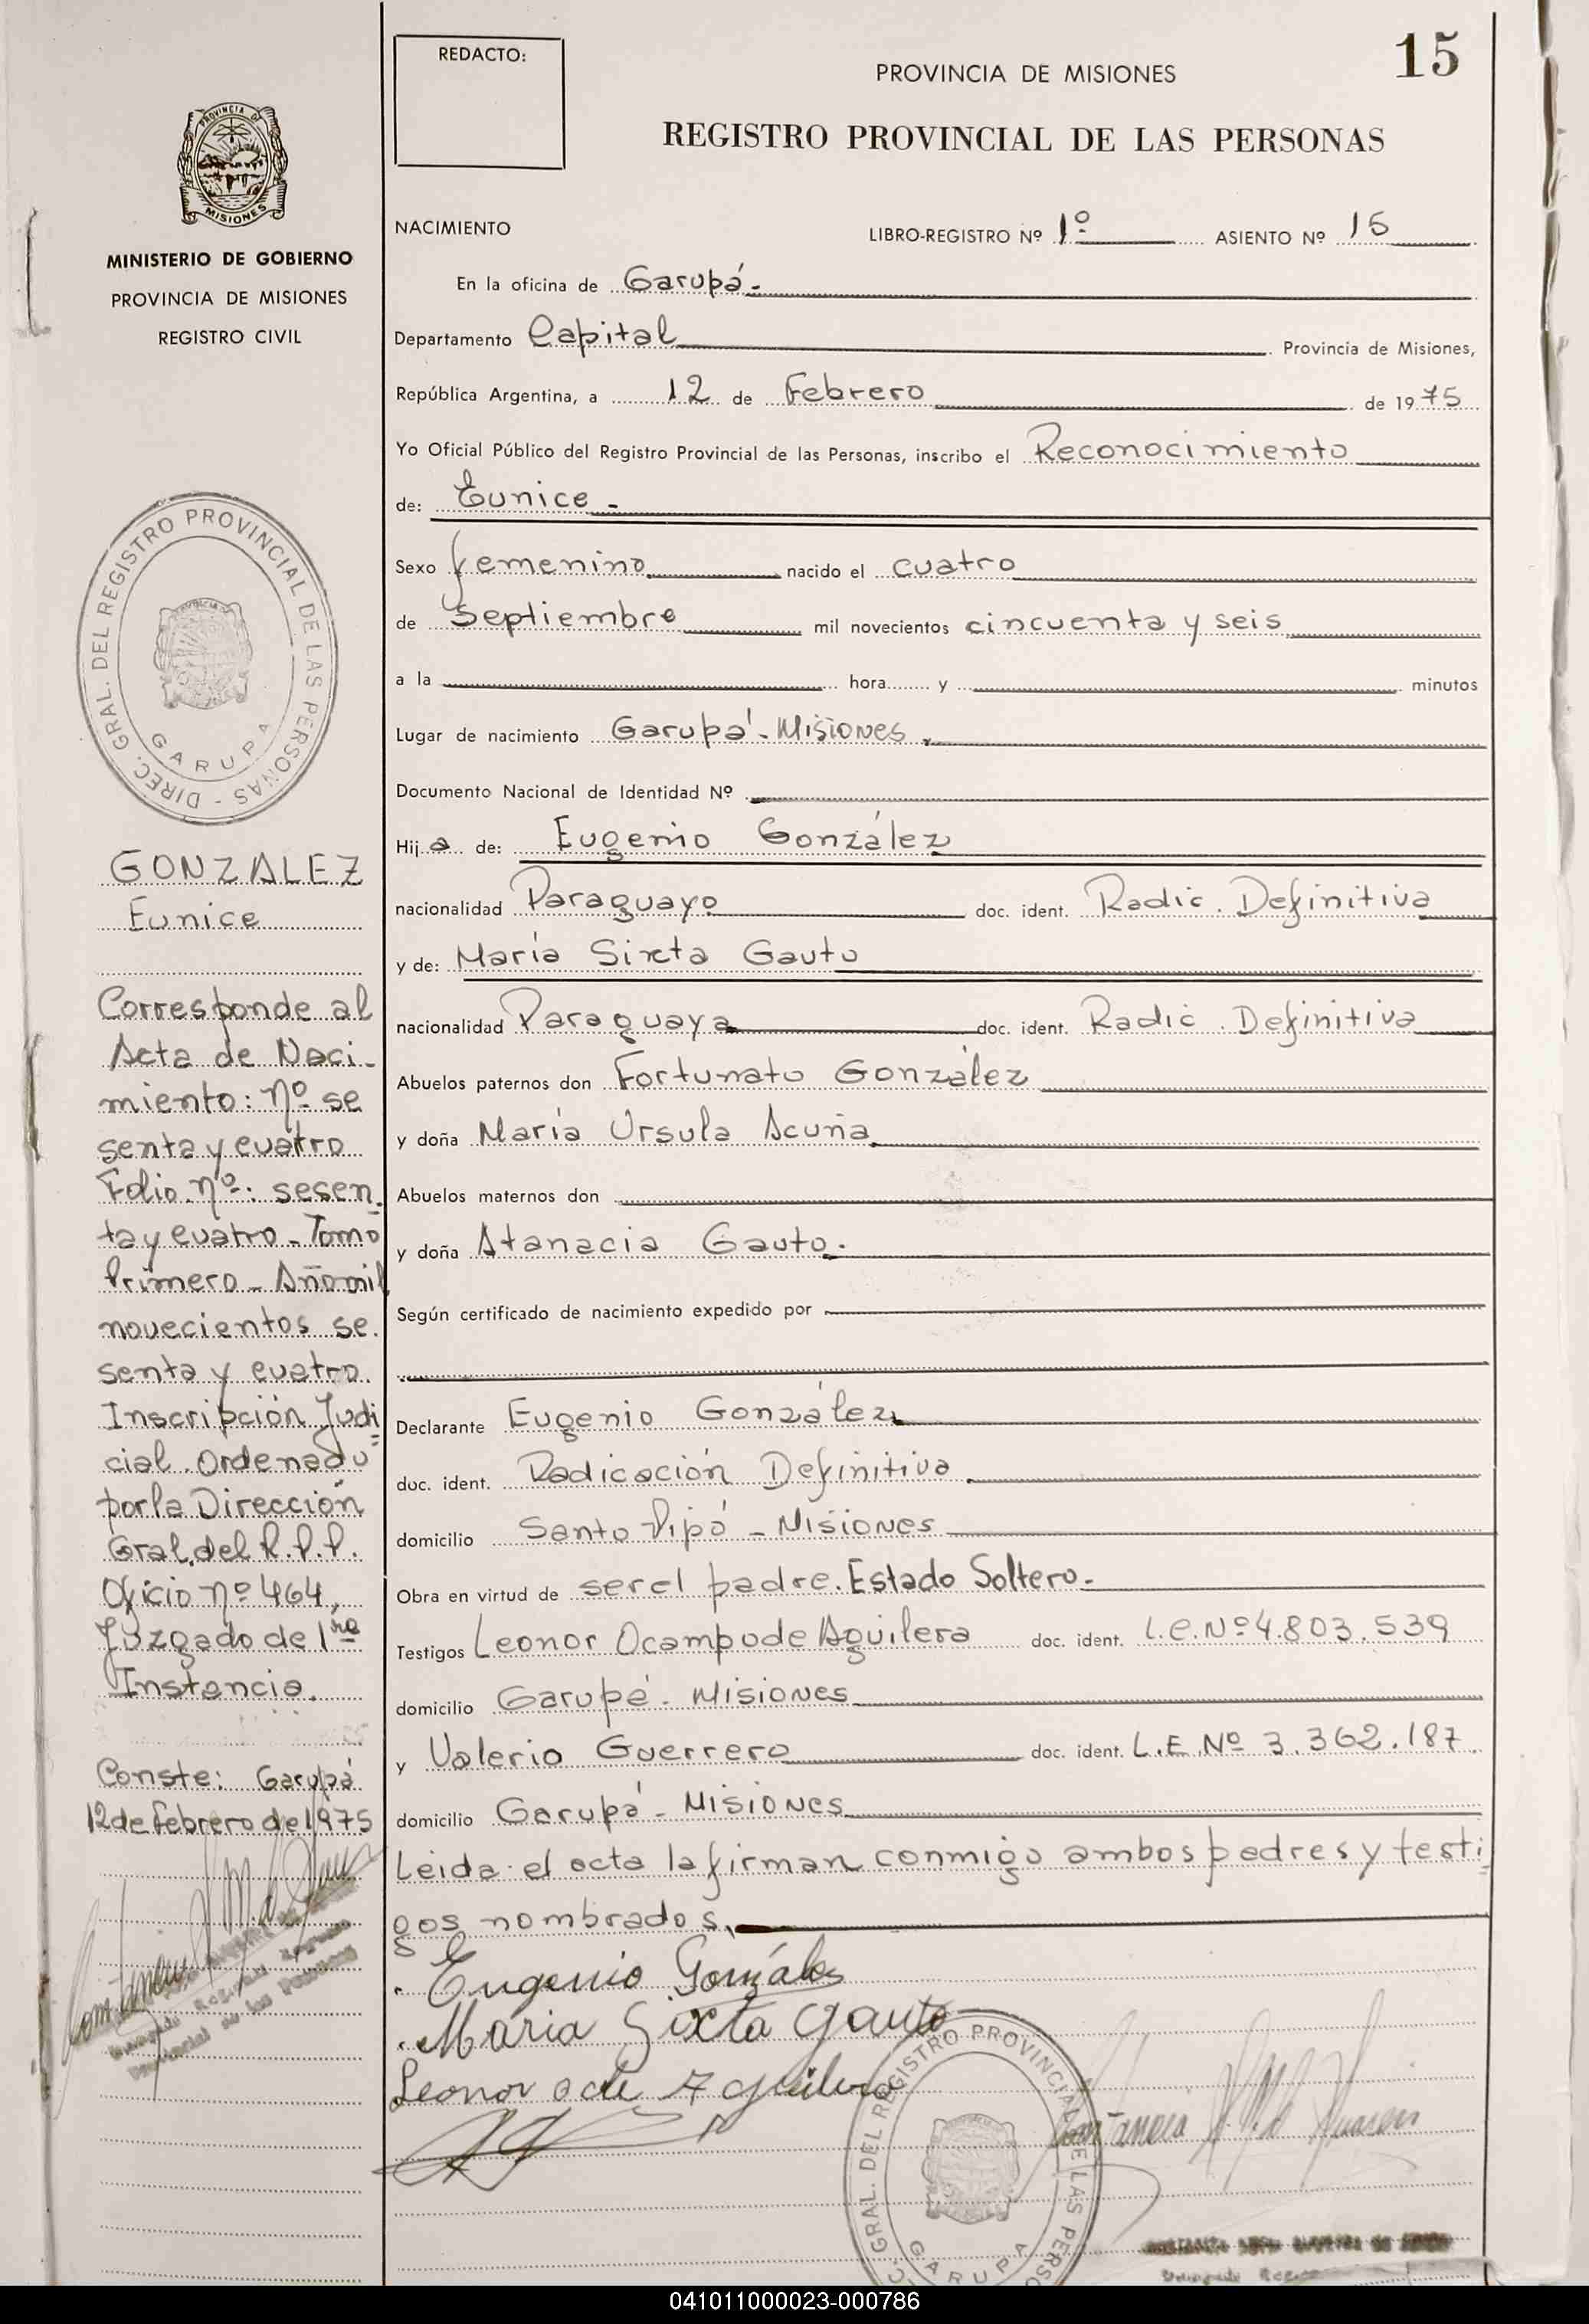 15
REDACTO:
PROVINCIA DE MISIONES
REGISTRO PROVINCIAL DE LAS PERSONAS
PROVINCIA DE
MISIONES
MINISTERIO DE GOBIERNO
PROVINCIA DE MISIONES
REGISTRO CIVIL
NACIMIENTO
LIBRO-REGISTRO Nº 1º ASIENTO Nº 15
En la oficina de Garupá-
Departamento Capital Provincia de Misiones,
República Argentina, a 12 de Febrero de 1975
Yo Oficial Público del Registro Provincial de las Personas, inscribo el Reconocimiento
de: Eunice -
Sexo femenino nacido el cuatro
de Septiembre mil novecientos cincuenta y seis
a la hora y minutos
Lugar de nacimiento Garupá - Misiones
Documento Nacional de Identidad Nº
Hija de: Eugenio González
nacionalidad Paraguayo doc. ident. Radic. Definitiva
y de: María Sixta Gauto
nacionalidad Paraguaya doc. ident. Radic. Definitiva
Abuelos paternos don Fortunato González
y doña María Ursula Acuña
Abuelos maternos don
y doña Atanacia Gauto.
Según certificado de nacimiento expedido por
Declarante Eugenio González
doc. ident. Radicación Definitiva
domicilio Santo Pipó - Misiones
Obra en virtud de ser el padre. Estado Soltero-
Testigos Leonor Ocampo de Aguilera doc. ident. L.C. Nº 4.803.539
domicilio Garupá - Misiones
y Valerio Guerrero doc. ident. L.E. Nº 3.362.187
domicilio Garupá - Misiones
Leida el acta la firman conmigo ambos padres y testi
gos nombrados.
Eugenio González
María Sixta Gauto
Leonor O de Aguilera
DIREC. GRAL. DEL REGISTRO PROVINCIAL DE LAS PERSONAS -
GARUPA
GONZALEZ
Eunice
Corresponde al
Acta de Naci-
miento: nº se
senta y cuatro
Folio nº: sesen.
ta y cuatro - Tomo
Primero - Año mil
novecientos se.
senta y cuatro.
Inscripción Judi
cial. Ordenado
por la Dirección
Gral. del R.P.P.
Oficio nº 464,
Juzgado de 1ra
Instancia.
Conste: Garupá
12 de Febrero de 1975
GRAL. DEL REGISTRO PROVINCIAL DE LAS PERSO
GARUPA
041011000023-000786